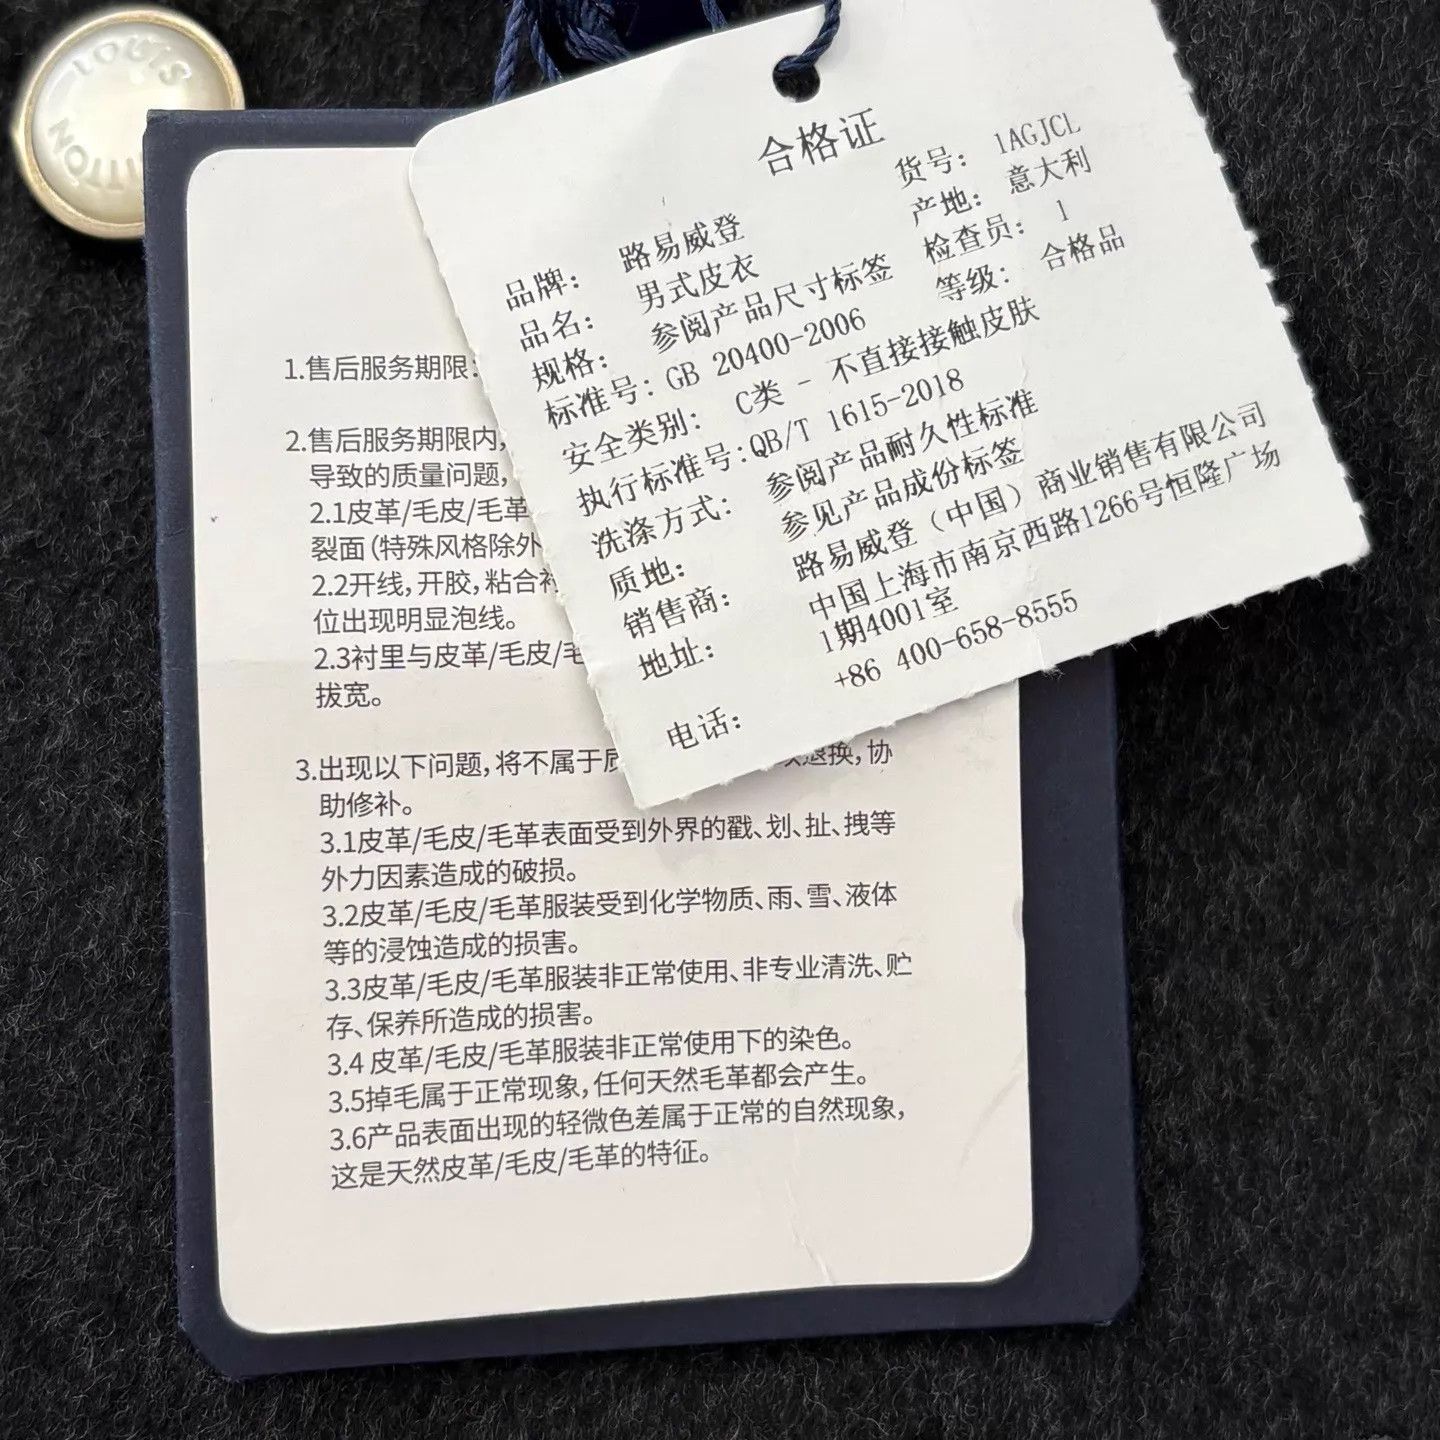 LOUIS
VUITTON
合格证
品牌： 路易威登 货号： 1AGJCL
品名： 男式皮衣 产地： 意大利
规格： 参阅产品尺寸标签 检查员： 1
标准号： GB 20400-2006 等级： 合格品
安全类别： C类 - 不直接接触皮肤
执行标准号：QB/T 1615-2018
洗涤方式： 参阅产品耐久性标准
质地： 参见产品成份标签
销售商： 路易威登（中国）商业销售有限公司
地址： 中国上海市南京西路1266号恒隆广场
1期4001室
电话： +86 400-658-8555
1.售后服务期限：
2.售后服务期限内，
导致的质量问题，
2.1皮革/毛皮/毛革
裂面（特殊风格除外
2.2开线，开胶，粘合衬
位出现明显泡线。
2.3衬里与皮革/毛皮/毛
拔宽。
3.出现以下问题，将不属于质 退换，协
助修补。
3.1皮革/毛皮/毛革表面受到外界的戳、划、扯、拽等
外力因素造成的破损。
3.2皮革/毛皮/毛革服装受到化学物质、雨、雪、液体
等的浸蚀造成的损害。
3.3皮革/毛皮/毛革服装非正常使用、非专业清洗、贮
存、保养所造成的损害。
3.4 皮革/毛皮/毛革服装非正常使用下的染色。
3.5掉毛属于正常现象，任何天然毛革都会产生。
3.6产品表面出现的轻微色差属于正常的自然现象，
这是天然皮革/毛皮/毛革的特征。